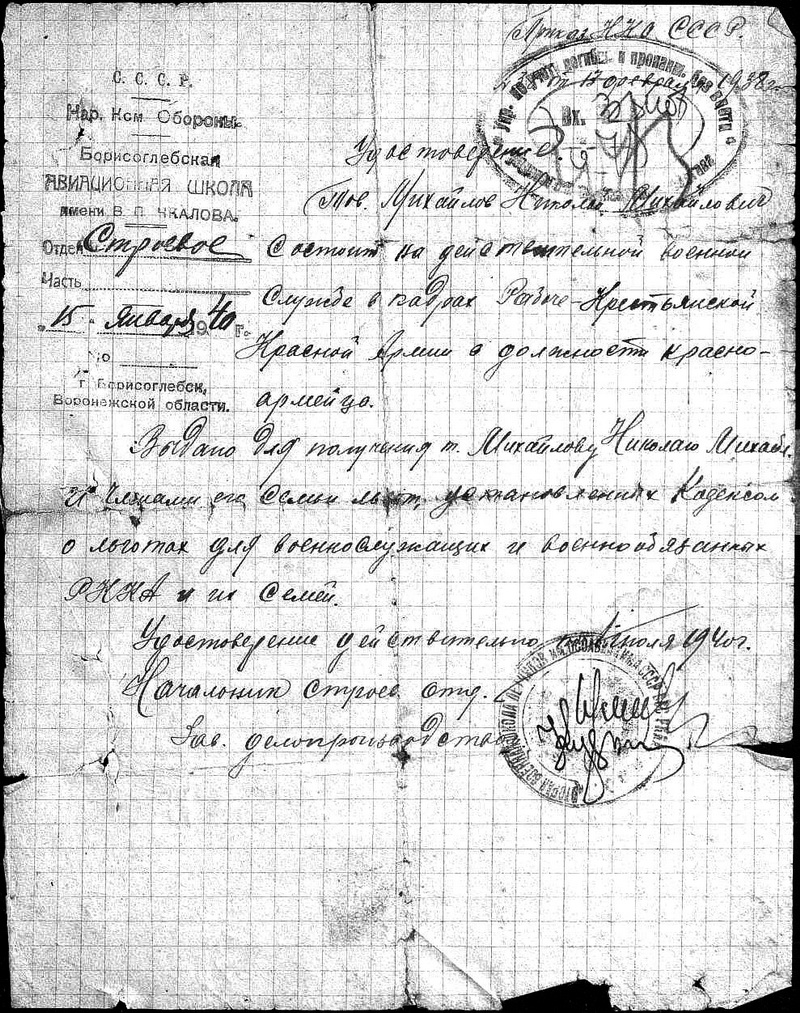 Приказ НКО СССР.
от 17 февраля 1938 г.
Упр. по учету погибш. и пропавш. без вести
Вх.
С. С. С. Р.
Нар. Ком Обороны.
Борисоглебская
АВИАЦИОННАЯ ШКОЛА
имени В. П. ЧКАЛОВА.
Отдел Строевое
Часть
"15" января 1940 г.
№
г. Борисоглебск,
Воронежской области.
Удостоверение.
Тов. Михайлов Николай Михайлович
Состоит на действительной военной
Службе в кадрах Рабоче-Крестьянской
Красной Армии в должности красно-
армейца.
Выдано для получения т. Михайлову Николаю Михайл.
и членами его семьи льгот, установленных Кодексом
о льготах для военнослужащих и военнообязанных
РККА и их семей.
Удостоверение действительно по июля 1940 г.
Начальник строев. отд.
Зав. делопроизводством